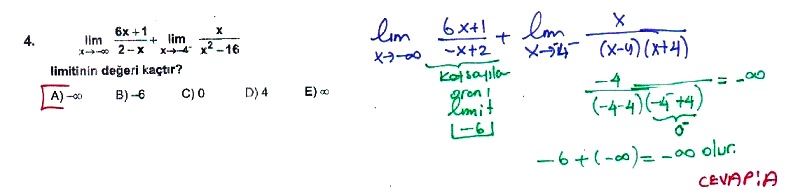 4. lim x→-∞ 6x+1 / 2-x + lim x→-4⁻ x / x²-16
limitinin değeri kaçtır?
A) -∞ B) -6 C) 0 D) 4 E) ∞
lim x→-∞ 6x+1 / -x+2 + lim x→-4⁻ x / (x-4)(x+4)
Katsayılar
oranı
limit
-6
-4 / (-4-4)(-4⁻+4) = -∞
0⁻
-6+(-∞)=-∞ olur.
CEVAP:A